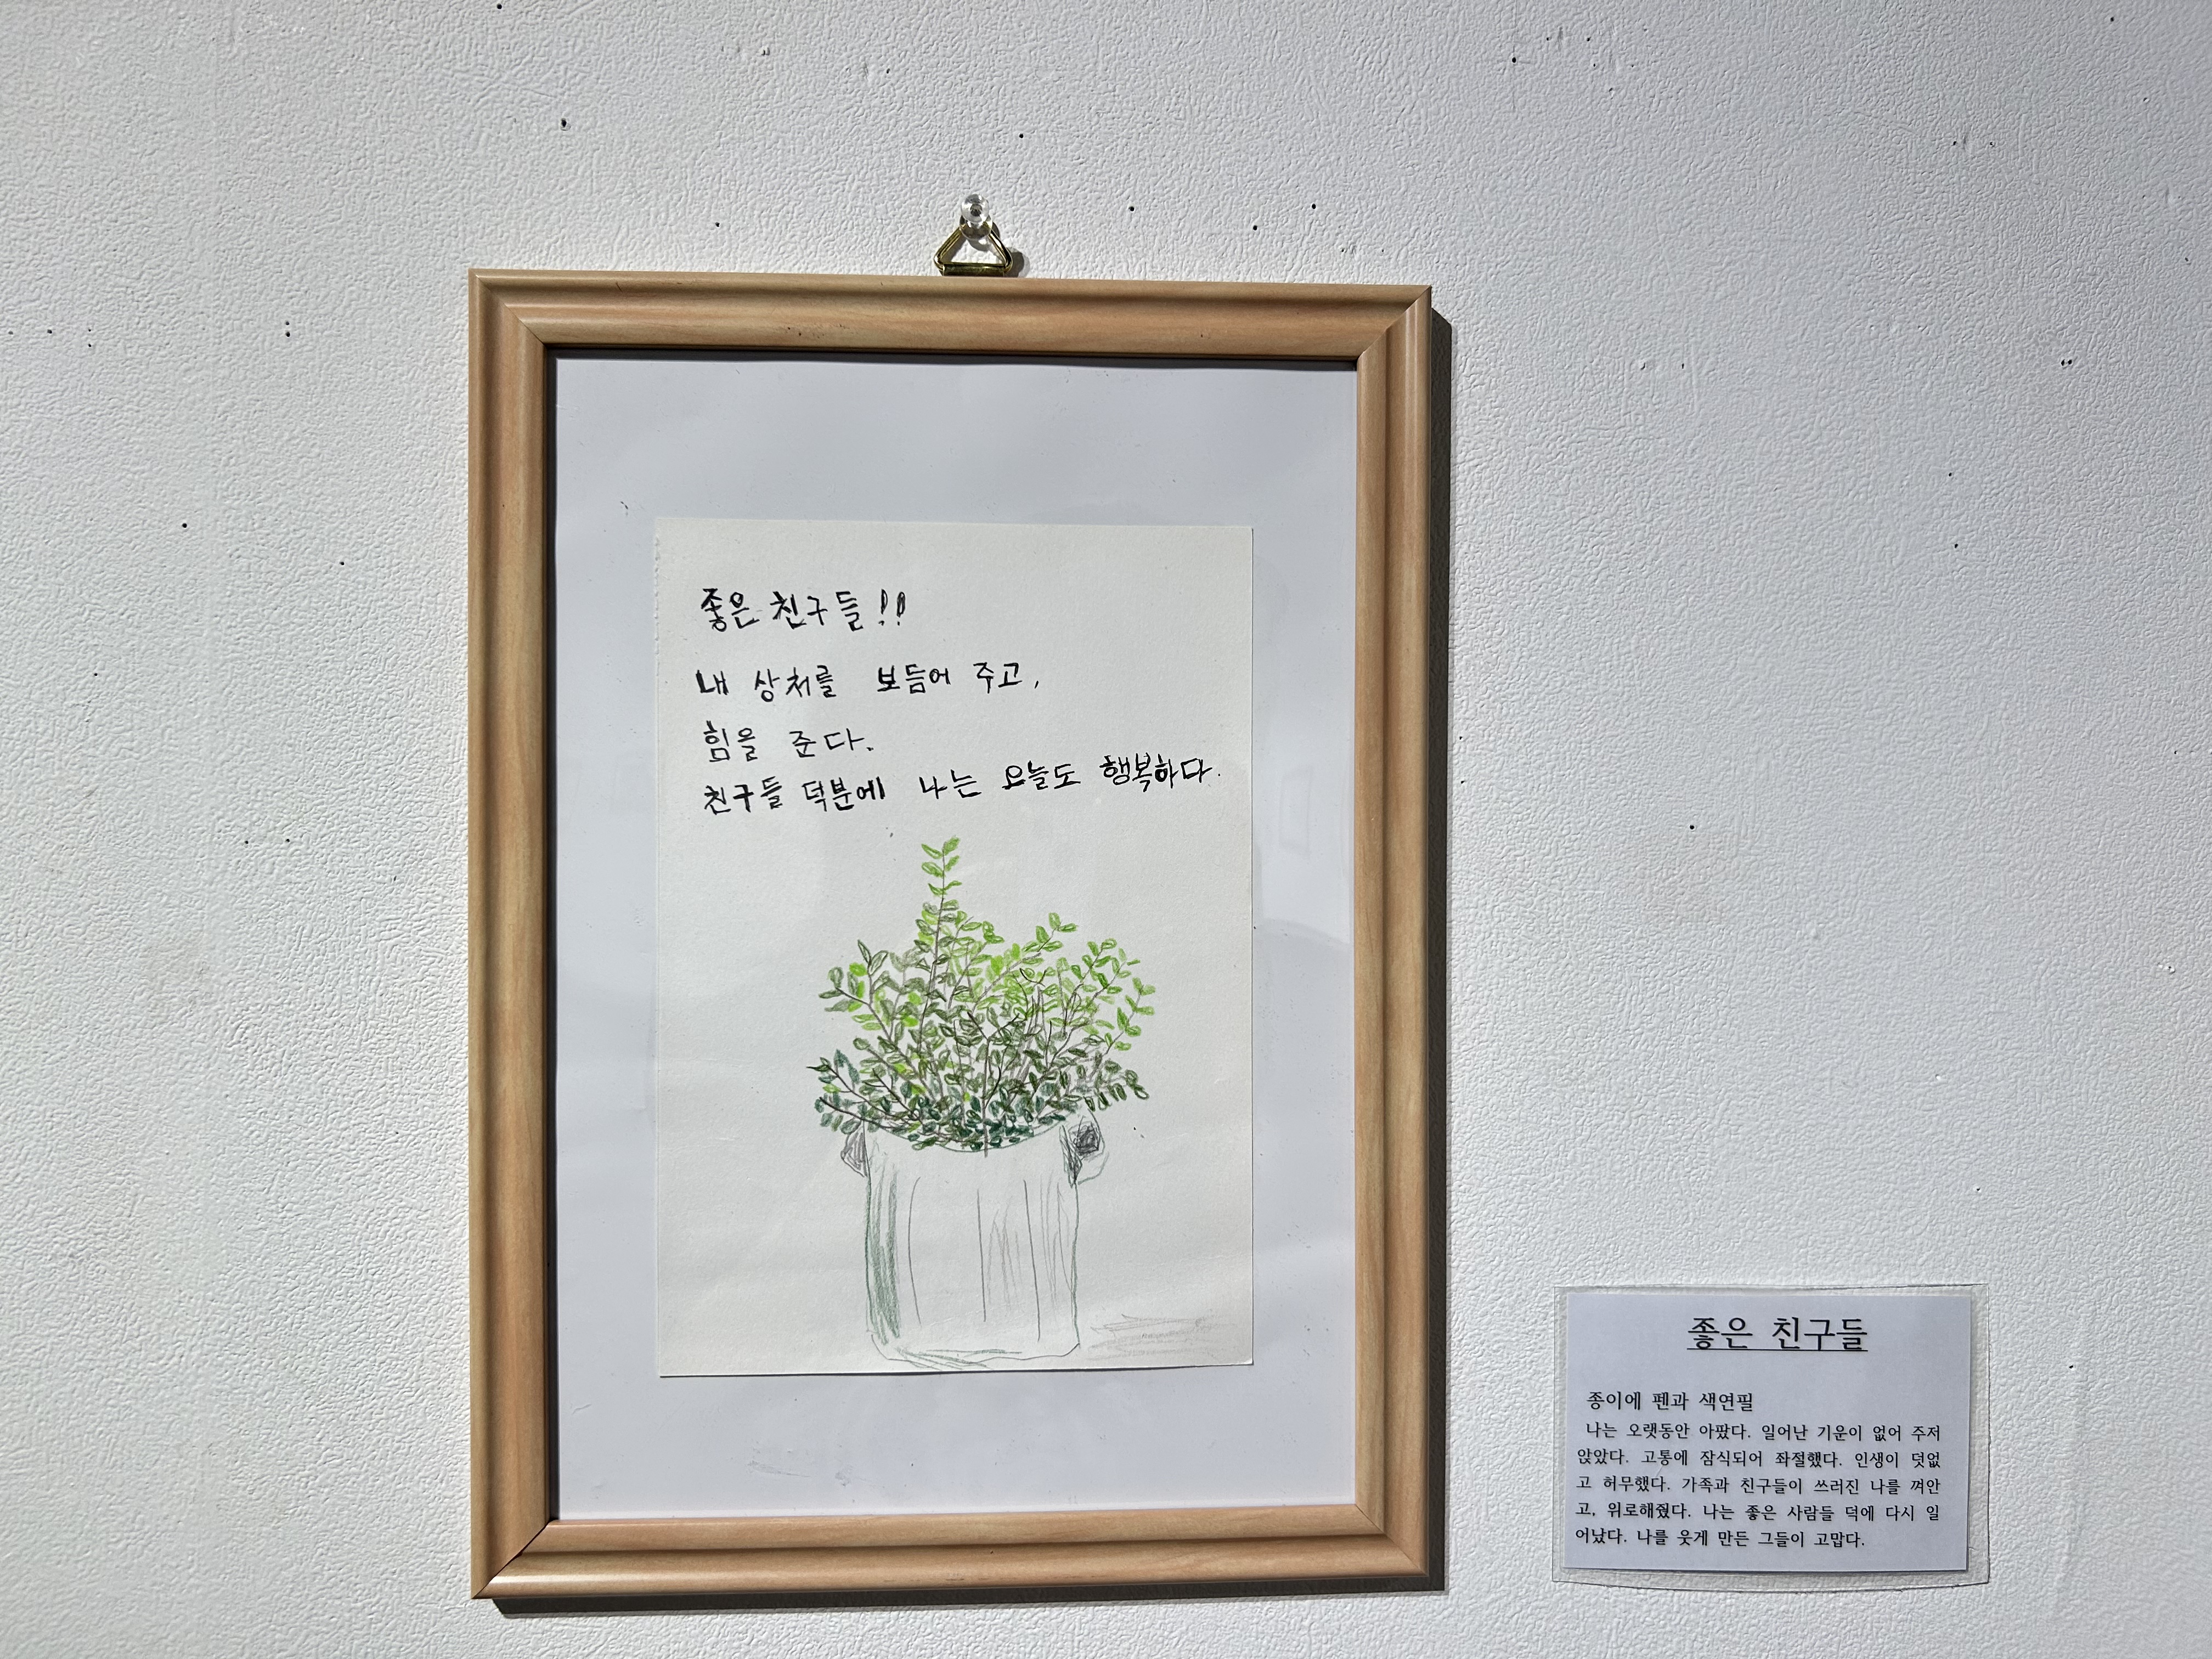 좋은 친구들!!
내 상처를 보듬어 주고,
힘을 준다.
친구들 덕분에 나는 오늘도 행복하다.
좋은 친구들
종이에 펜과 색연필
나는 오랫동안 아팠다. 일어난 기운이 없어 주저
앉았다. 고통에 잠식되어 좌절했다. 인생이 덧없
고 허무했다. 가족과 친구들이 쓰러진 나를 껴안
고, 위로해줬다. 나는 좋은 사람들 덕에 다시 일
어났다. 나를 웃게 만든 그들이 고맙다.